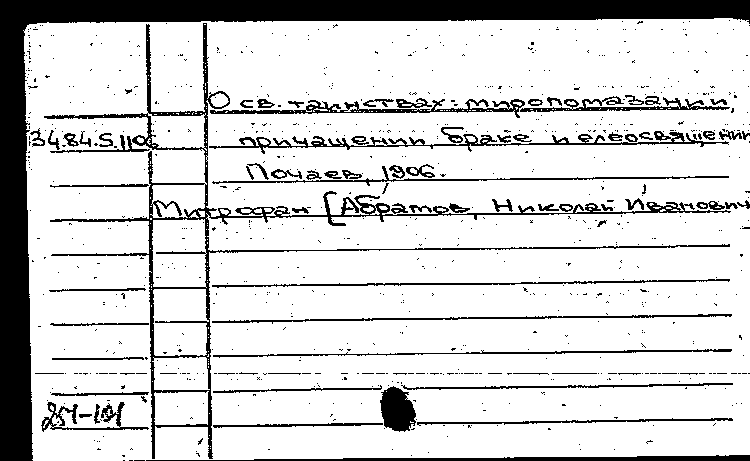 О св. таинствах: миропомазании,
34.84.S.1106 причащении, браке и елеосвящении
Почаев, 1906.
Митрофан [Абрамов, Николай Иванович
251-101